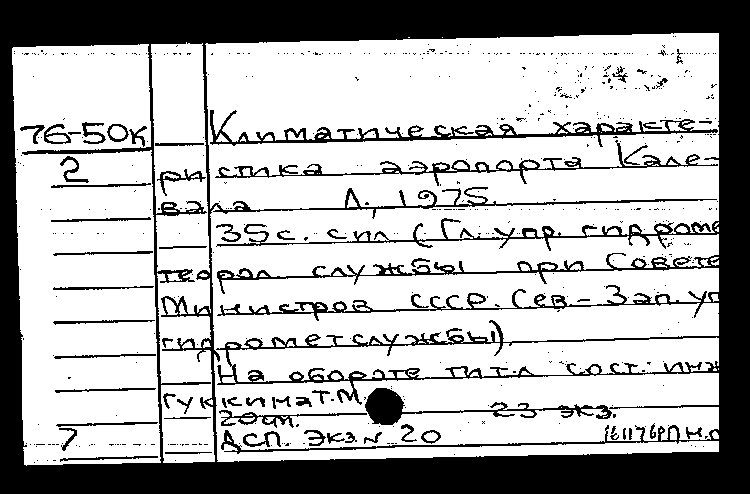 76-50к Климатическая характе-
2 ристика аэропорта Кале-
вала Л., 1975.
35с. с ил (Гл. упр. гидроме
теорол службы при Совете
Министров СССР. Сев-Зап. уп
гидрометслужбы).
На обороте тит.л сост: инж
Гуккина Т.М.
20см. 23 экз.
7 ДСП. Экз.N 20